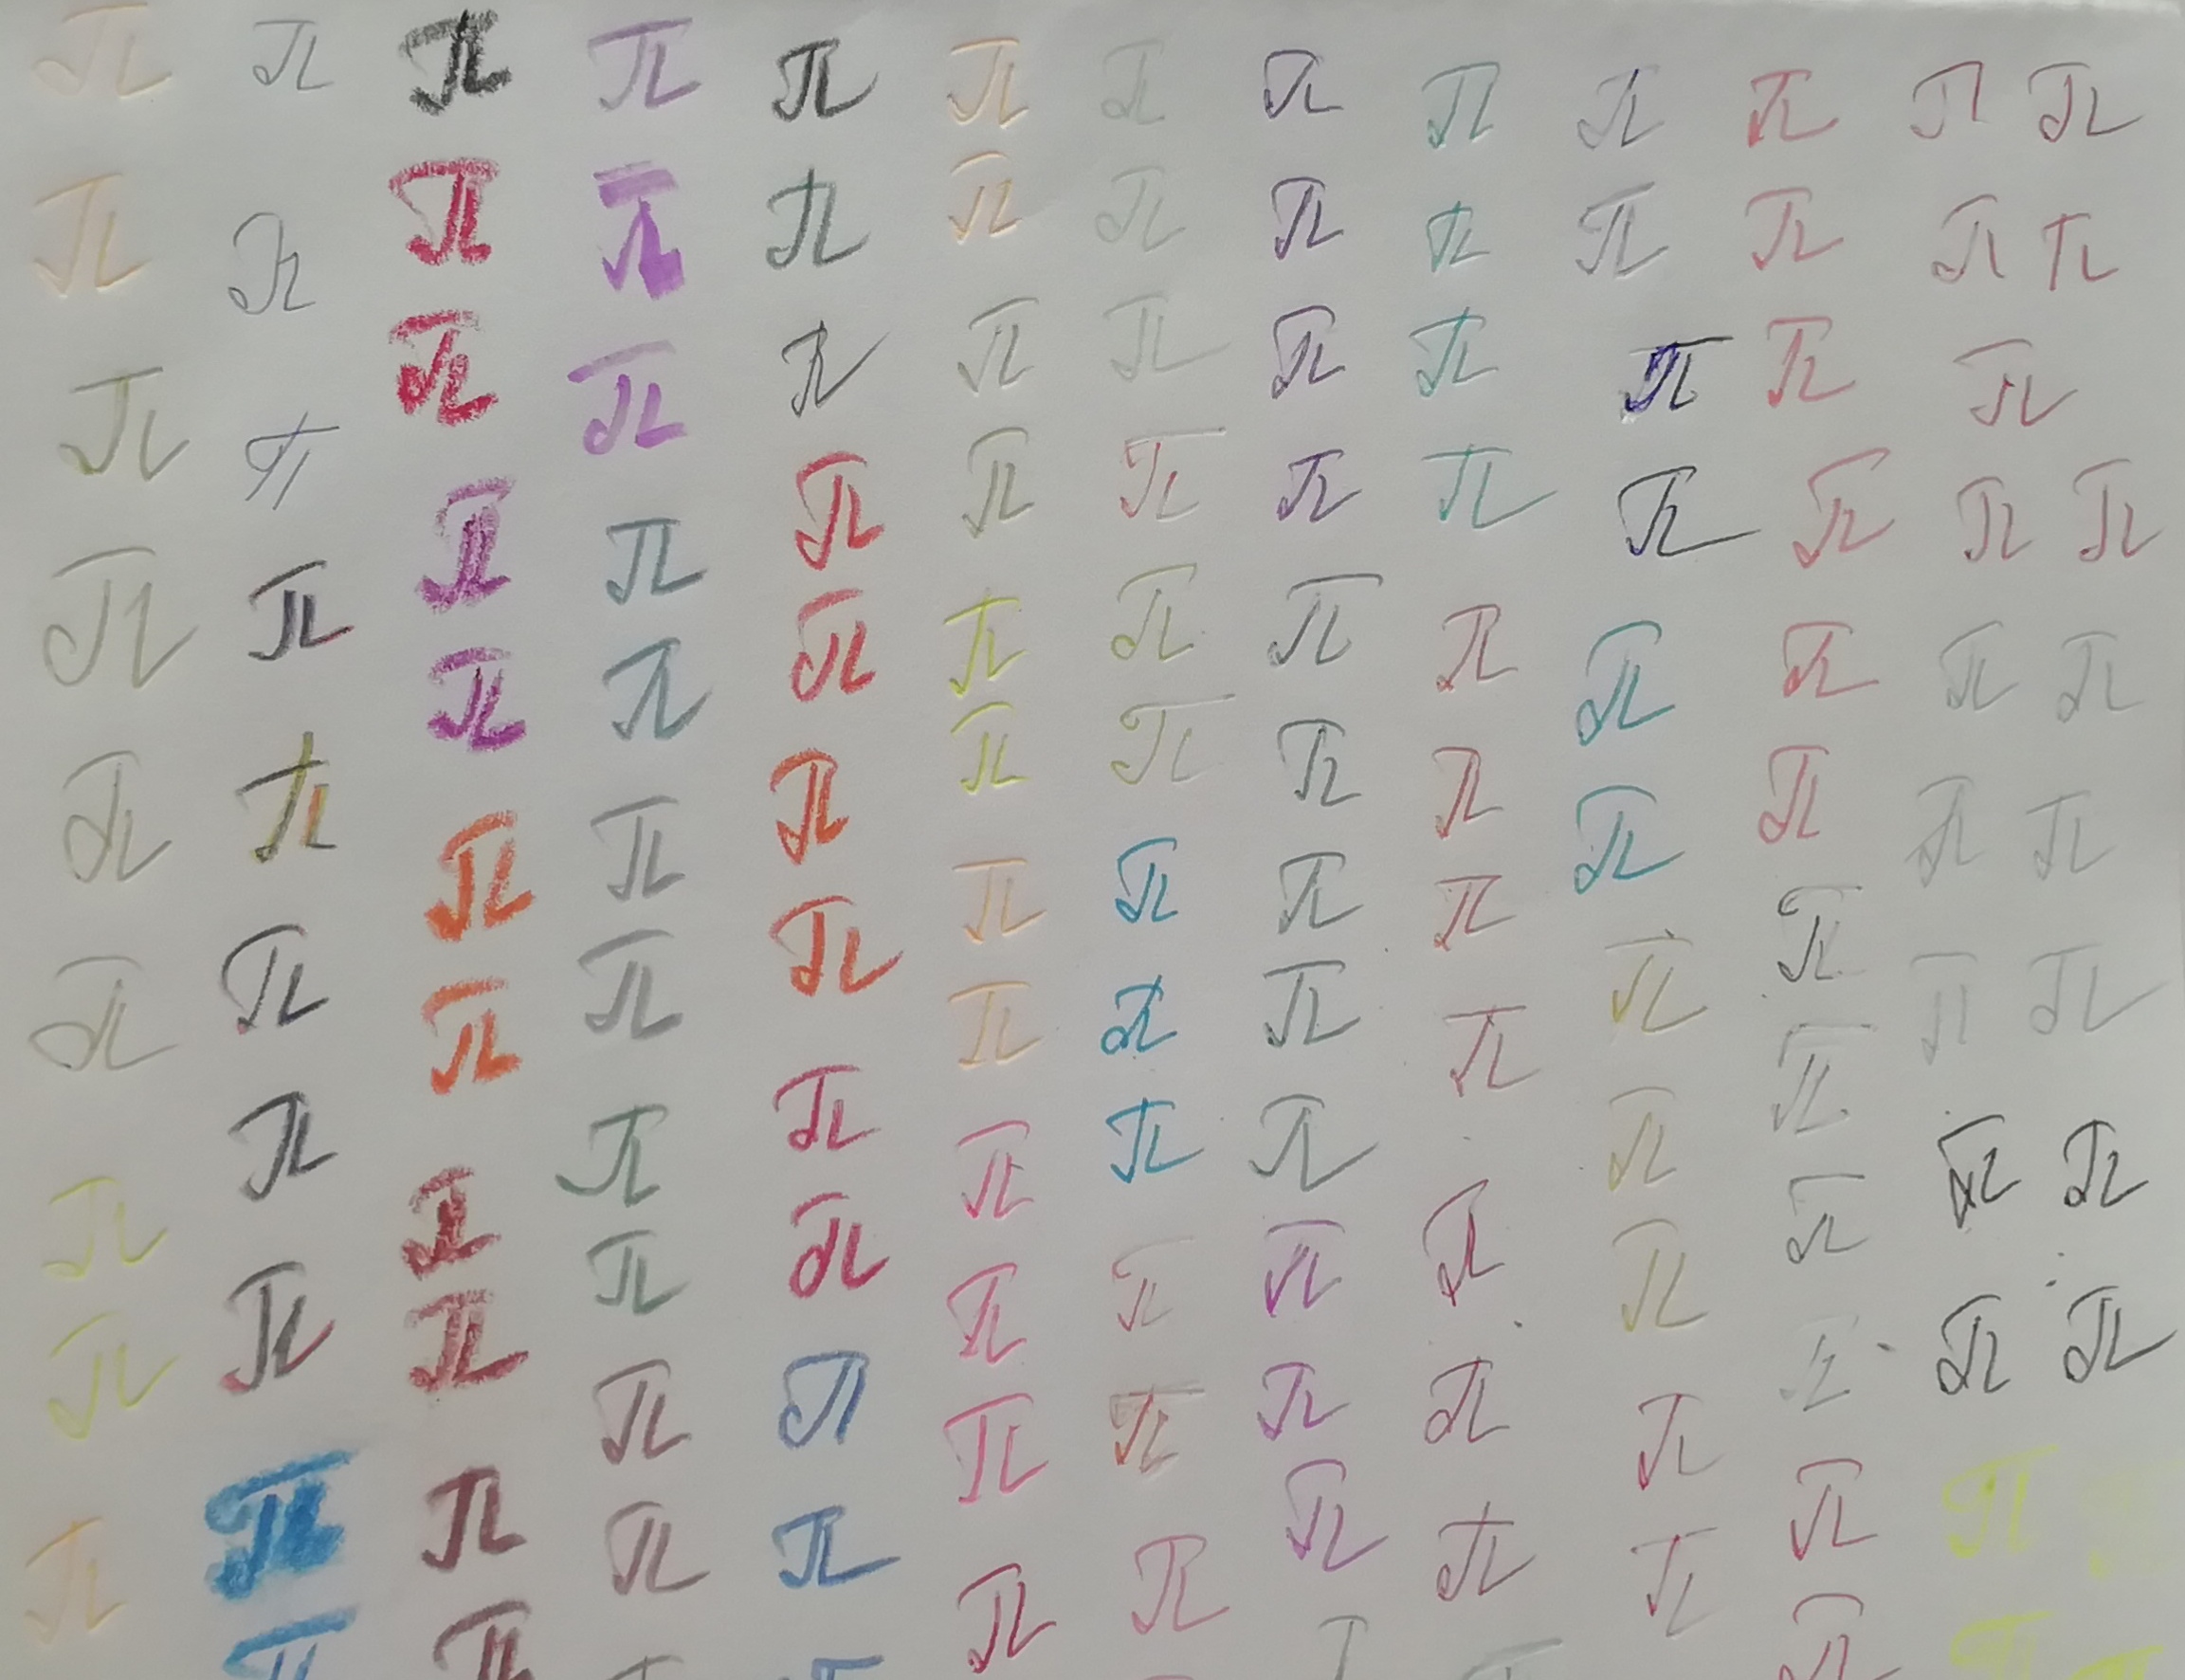 π π π π π π π π π π π π π
π π π π π π π π π π π π π
π π π π π π π π π π π π
π π π π π π π π π π π π π
π π π π π π π π π π π π π
π π π π π π π π π π π π π
π π π π π π π π π π π π π
π π π π π π π π π π π π π
π π π π π π π π π π π π π
π π π π π π π π π π π
π π π π π π π π π π
π π π π π